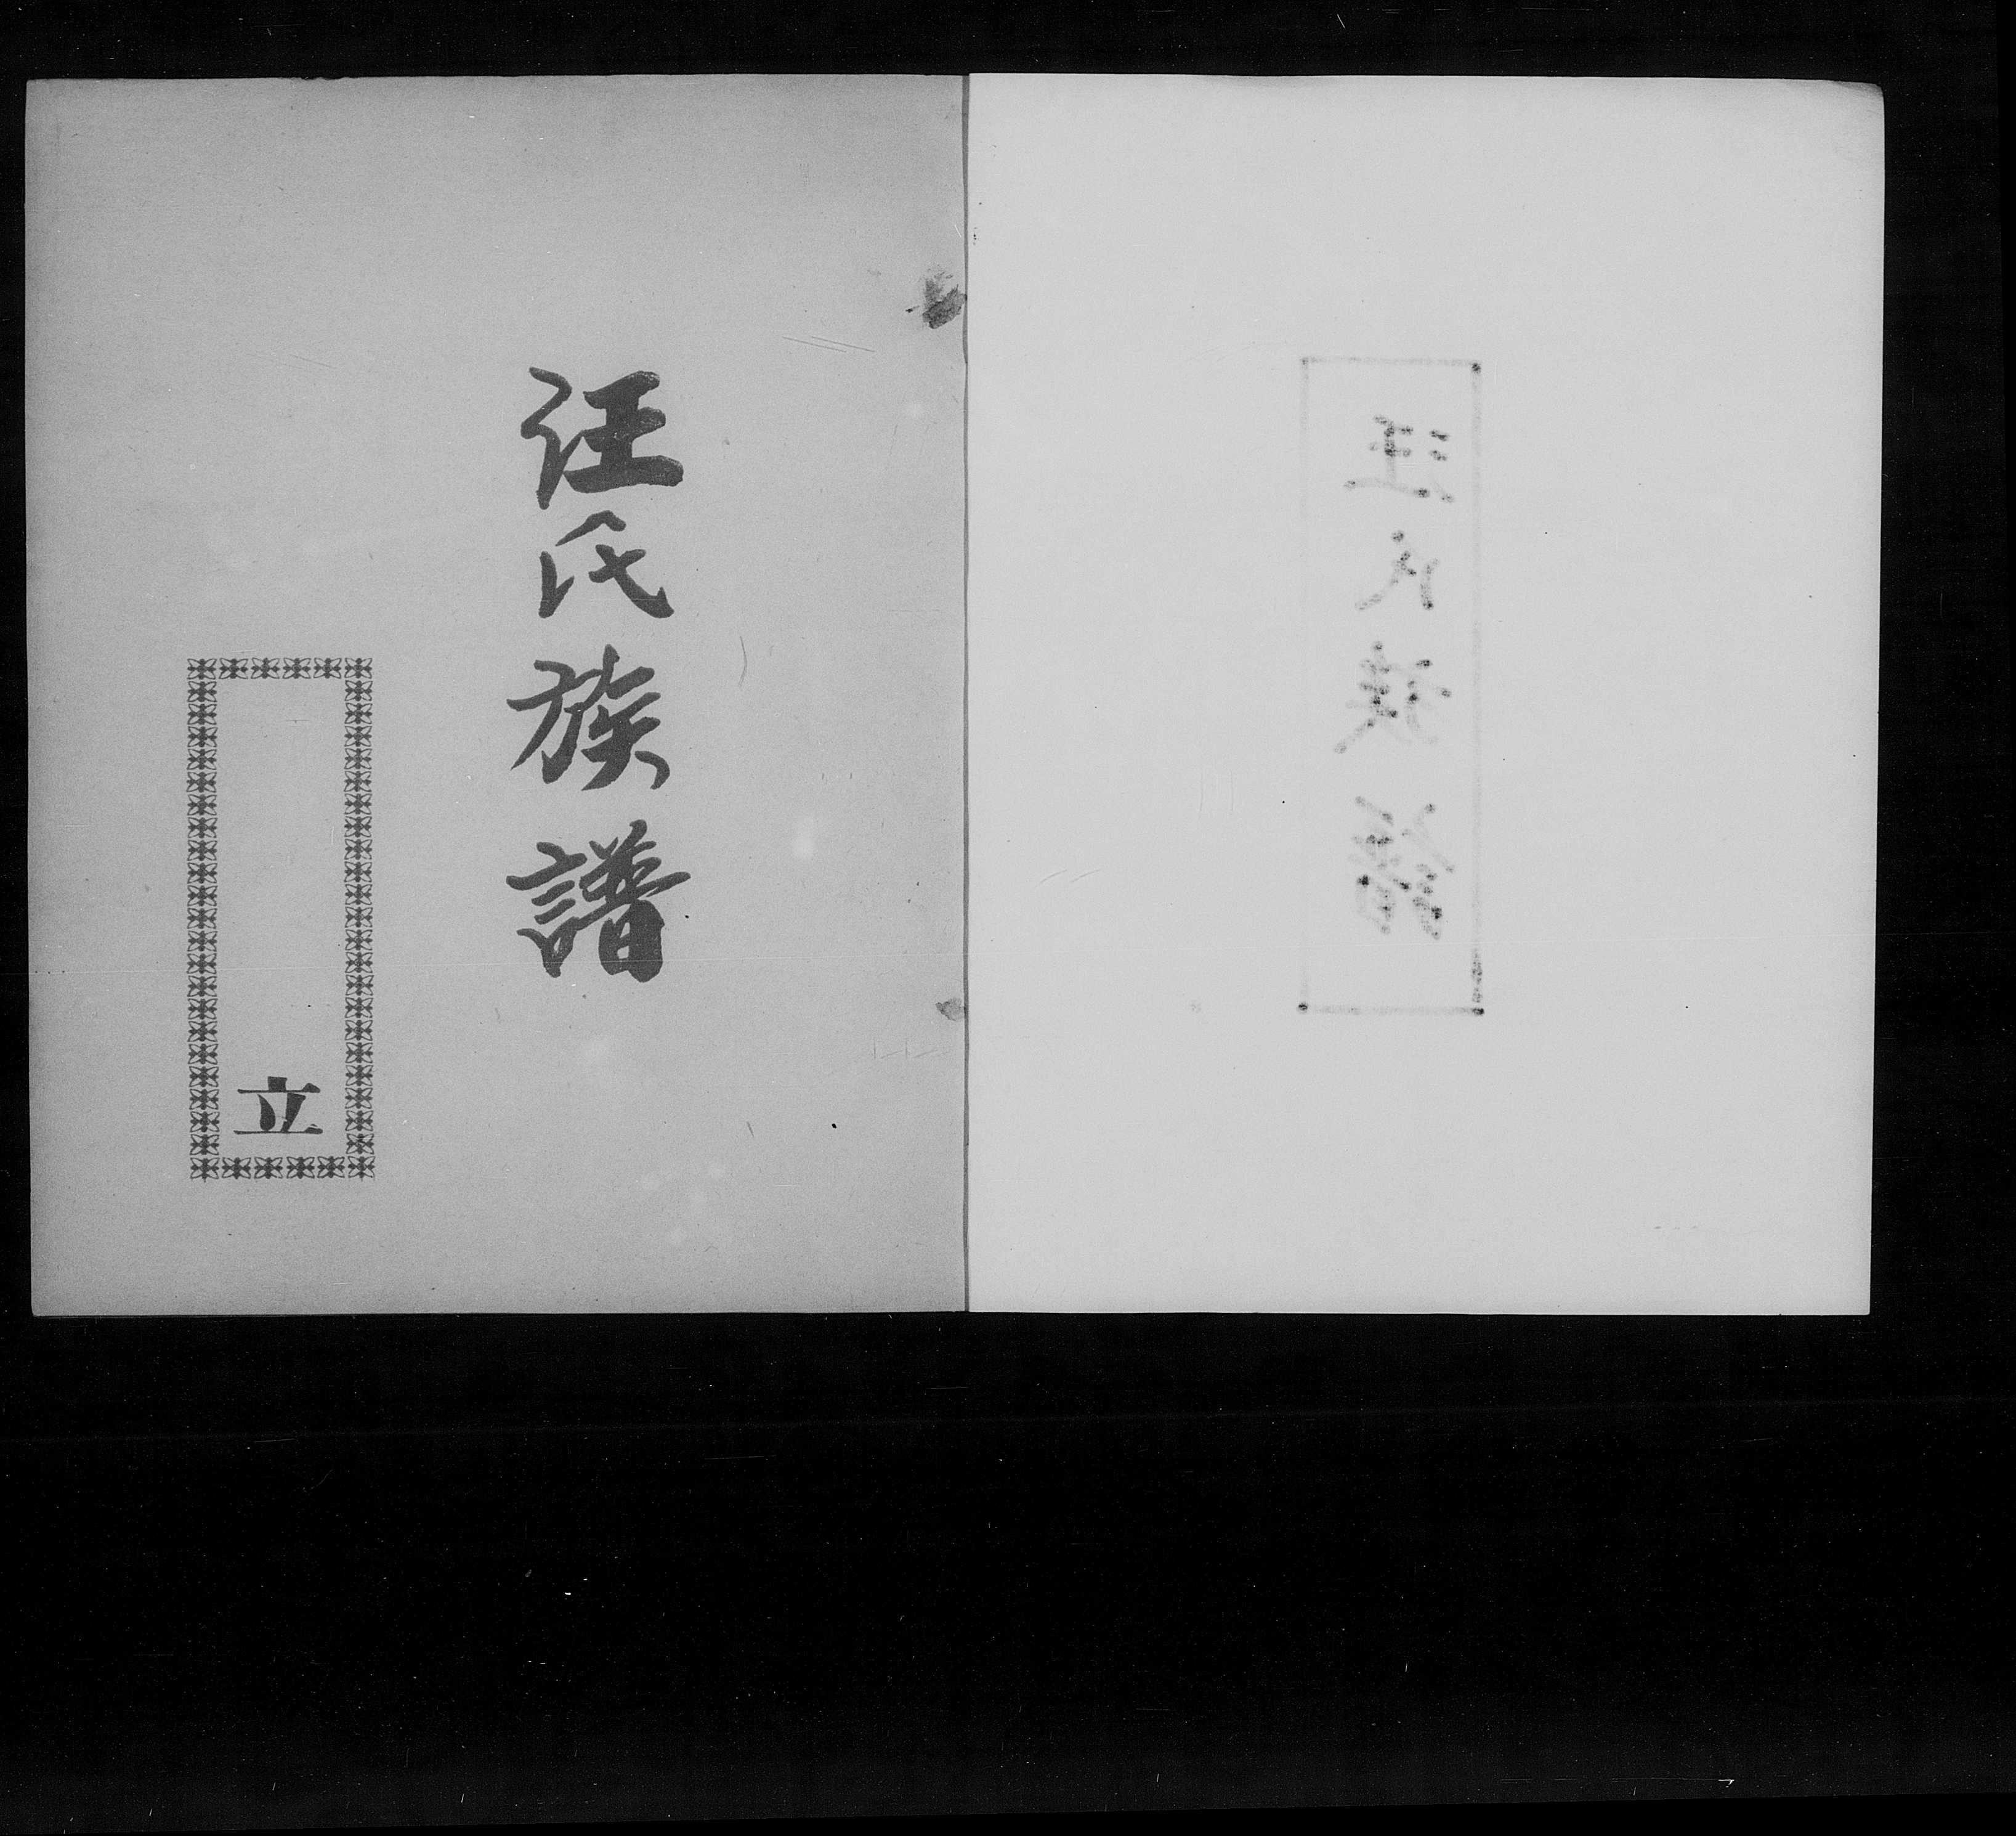 汪氏族譜
汪氏族譜
立